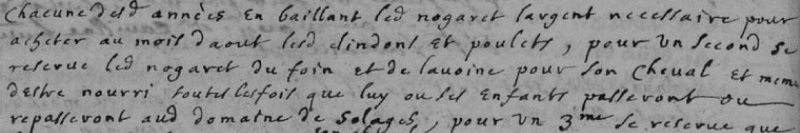 chacune desd années En baillant led nogaret largent necessaire pour
acheter au mois daout lesd dindons Et poulets, pour Un second se
reserve led nogaret du foin et de lavoine pour son cheval et meme
destre nourri toutes lesfois que luy ou ses Enfants passeront ou
repasseront aud domaine de Solages, pour Un 3me se reserve que